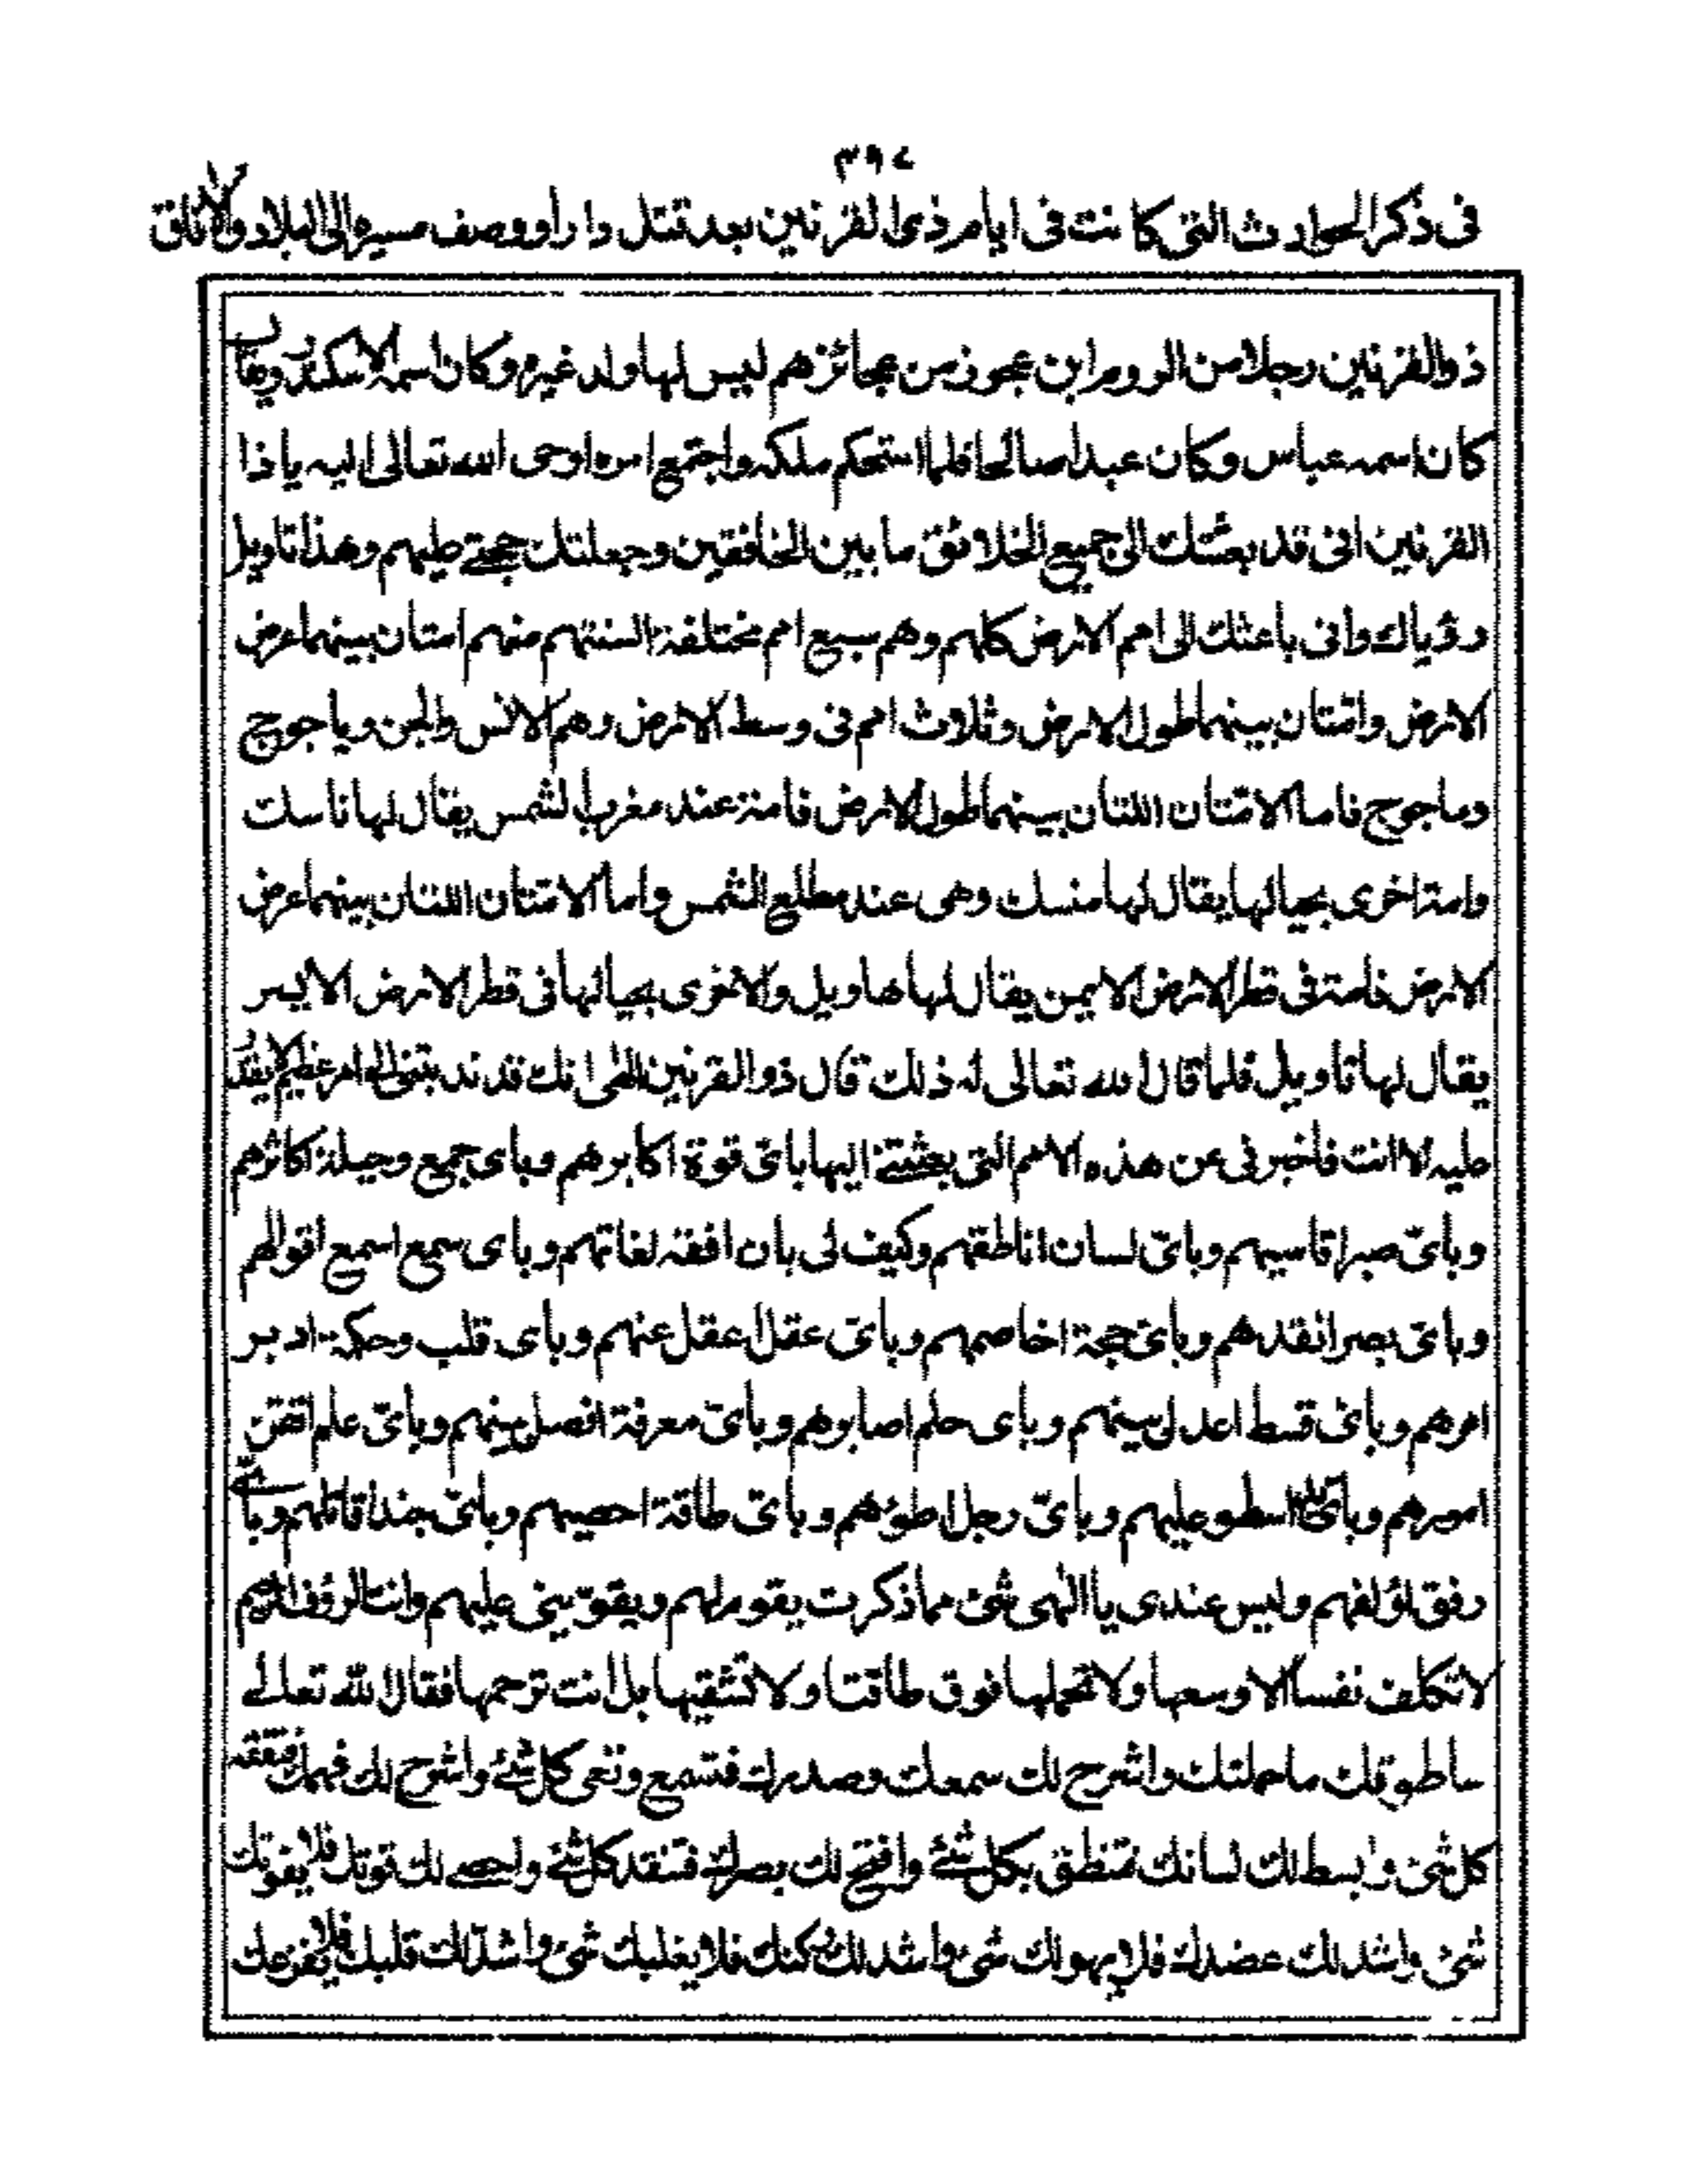 ٣٩٤
فى ذكر الحوادث التى كانت فى ايام ذى القرنين بعد قتل دارا ووصف مسيره الى البلاد والآفاق
ذو القرنين رجلا من الروم ابن عجوز من عجائزهم ليس لها ولد غيره وكان اسمه الاسكندر ويقال
كان اسمه عباس وكان عبدا صالحا فلما استحكم ملكه واجتمع امره اوحى الله تعالى اليه ياذا
القرنين انى قد بعثتك الى جميع الخلائق ما بين الخافقين وجعلتك حجتے عليهم وهذا تاويل
رؤياك وانى باعثك الى امم الارض كلهم وهم سبع امم مختلفة السنتهم منهم امتان بينهما عرض
الارض وامتان بينهما طول الارض وثلاث امم فى وسط الارض وهم الانس والجن وياجوج
وماجوج فاما الامتان اللتان بينهما طول الارض فامة عند مغرب الشمس يقال لها ناسك
وامة اخرى بحيالها يقال لها منسك وهى عند مطلع الشمس واما الامتان اللتان بينهما عرض
الارض فامة فى قطر الارض الايمن يقال لها هاويل والاخرى بحيالها فى قطر الارض الايسر
يقال لها تاويل فلما قال الله تعالى له ذلك قال ذو القرنين الهى انك قد ندبتنى الى امر عظيم لا يقدر
عليه الا انت فاخبرنى عن هذه الامم التى بعثتنے اليها باىّ قوة اكابرهم وباى جمع وحيلة اكاثرهم
وباىّ صبر اقاسيهم وباىّ لسان اناطقهم وكيف لى بان افقه لغاتهم وباى سمع اسمع اقوالهم
وباىّ بصر انقدهم وباىّ حجة اخاصمهم وباىّ عقل اعقل عنهم وباى قلب وحكمة ادبر
امرهم وباىّ قسط اعدل بينهم وباى حلم اصابرهم وباىّ معرفة افصل بينهم وباىّ علم اتقن
امورهم وباىّ يد اسطو عليهم وباىّ رجل اطؤهم وباىّ طاقة احصيهم وباىّ جند اقاتلهم وباىّ
رفق اؤلفهم وليس عندى يا الهى شئ مما ذكرت يقوم لهم ويقوينى عليهم وانت الرؤف الرحيم
لا تكلف نفسا الا وسعها ولا تحملها فوق طاقتها ولا تشقيها بل انت ترحمها فقال الله تعالے
ساطوقك ما حملتك واشرح لك سمعك وصدرك فتسمع وتعى كل شئے واشرح لك فهمك فتفقه
كل شئ وابسط لك لسانك فتنطق بكل شئے وافتح لك بصرك فتنقد كل شئے واحصے لك قوتك فلا يفوتك
شئ واشد لك عضدك فلا يهولك شئ واشد لك ركنك فلا يغلبك شئ واشد لك قلبك فلا يفزعك